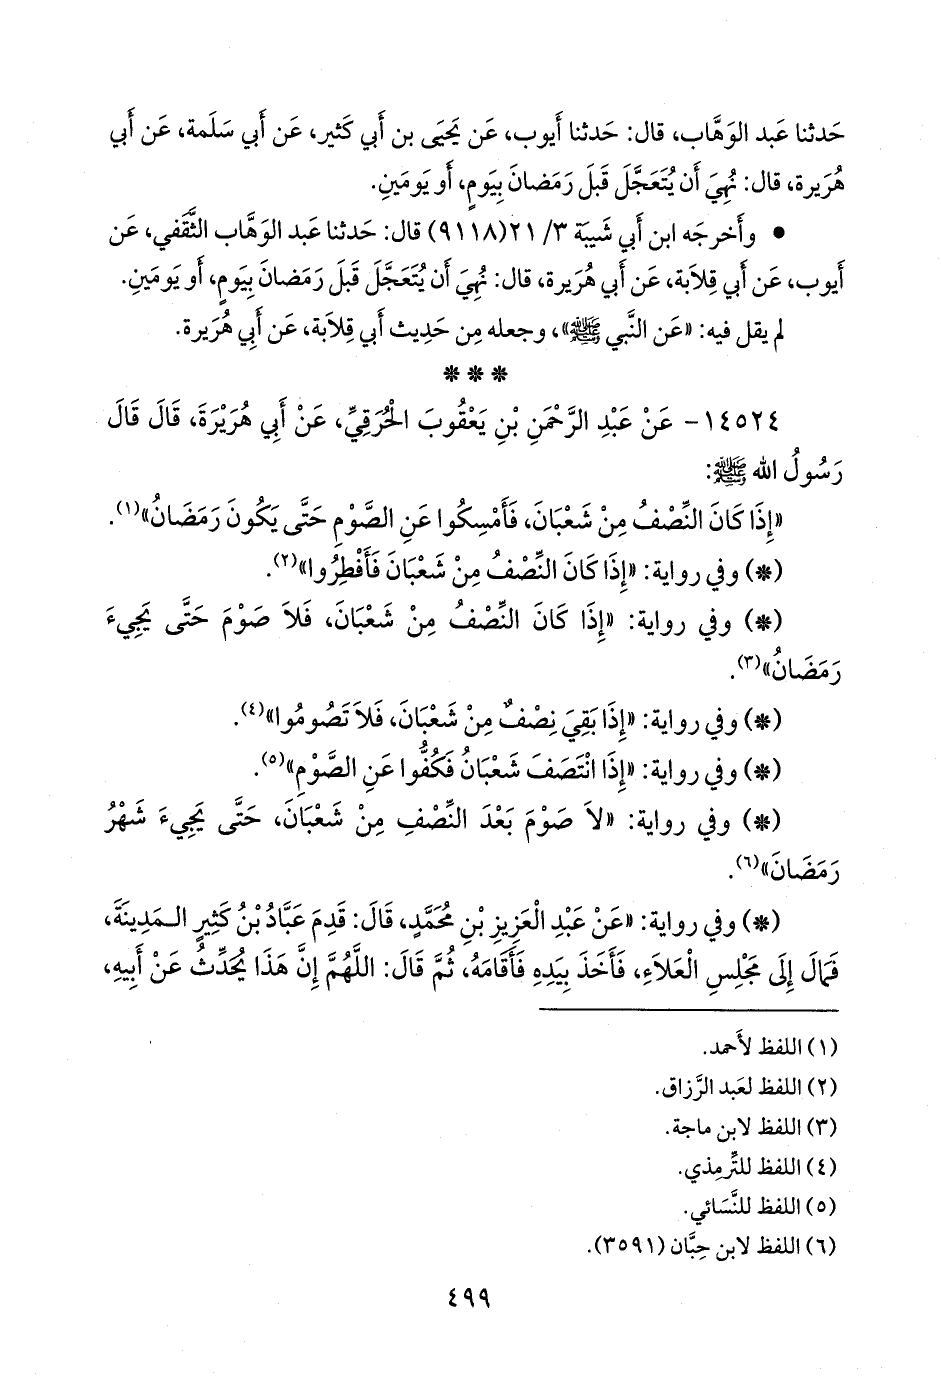 حَدثنا عَبد الوَهَّاب، قال: حَدثنا أَيوب، عَن يَحيَى بن أَبي كَثير، عَن أَبي سَلَمة، عَن أَبي
هُرَيرة، قال: نُهِيَ أَن يُتَعَجَّلَ قَبلَ رَمَضانَ بِيَومٍ، أَو يَومَينِ.
• وأَخرجَه ابن أَبي شَيبَة ٣/ ٢١(٩١١٨) قال: حَدثنا عَبد الوَهاب الثَّقَفي، عَن
أَيوب، عَن أَبي قِلاَبة، عَن أَبي هُرَيرة، قال: نُهِيَ أَن يُتَعَجَّلَ قَبلَ رَمَضانَ بِيَومٍ، أَو يَومَينِ.
لم يقل فيه: «عَن النَّبي ﷺ»، وجعله مِن حَديث أَبي قِلاَبة، عَن أَبِي هُرَيرة.
* * *
١٤٥٢٤- عَنْ عَبْدِ الرَّحْمَنِ بْنِ يَعْقُوبَ الْحُرَقِيِّ، عَنْ أَبِي هُرَيْرَةَ، قَالَ قَالَ
رَسُولُ الله ﷺ:
«إِذَا كَانَ النِّصْفُ مِنْ شَعْبَانَ، فَأَمْسِكُوا عَنِ الصَّوْمِ حَتَّى يَكُونَ رَمَضَانُ»(١).
(*) وفي رواية: «إِذَا كَانَ النِّصْفُ مِنْ شَعْبَانَ فَأَفْطِرُوا»(٢).
(*) وفي رواية: «إِذَا كَانَ النِّصْفُ مِنْ شَعْبَانَ، فَلاَ صَوْمَ حَتَّى يَجِيءَ
رَمَضَانُ»(٣).
(*) وفي رواية: «إِذَا بَقِيَ نِصْفٌ مِنْ شَعْبَانَ، فَلاَ تَصُومُوا»(٤).
(*) وفي رواية: «إِذَا انْتَصَفَ شَعْبَانُ فَكُفُّوا عَنِ الصَّوْمِ»(٥).
(*) وفي رواية: «لاَ صَوْمَ بَعْدَ النِّصْفِ مِنْ شَعْبَانَ، حَتَّى يَجِيءَ شَهْرُ
رَمَضَانَ»(٦).
(*) وفي رواية: «عَنْ عَبْدِ الْعَزِيزِ بْنِ مُحَمَّدٍ، قَالَ: قَدِمَ عَبَّادُ بْنُ كَثِيرٍ الـمَدِينَةَ،
فَمَالَ إِلَى مَجْلِسِ الْعَلاَءِ، فَأَخَذَ بِيَدِهِ فَأَقَامَهُ، ثُمَّ قَالَ: اللَّهُمَّ إِنَّ هَذَا يُحَدِّثُ عَنْ أَبِيهِ،
(١) اللفظ لأَحمد.
(٢) اللفظ لعَبد الرَّزاق.
(٣) اللفظ لابن ماجة.
(٤) اللفظ للتِّرمِذي.
(٥) اللفظ للنَّسَائي.
(٦) اللفظ لابن حِبَّان (٣٥٩١).
٤٩٩